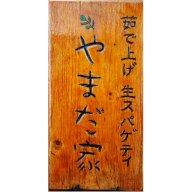 茹で上げ 生スパゲティ
やまだ家